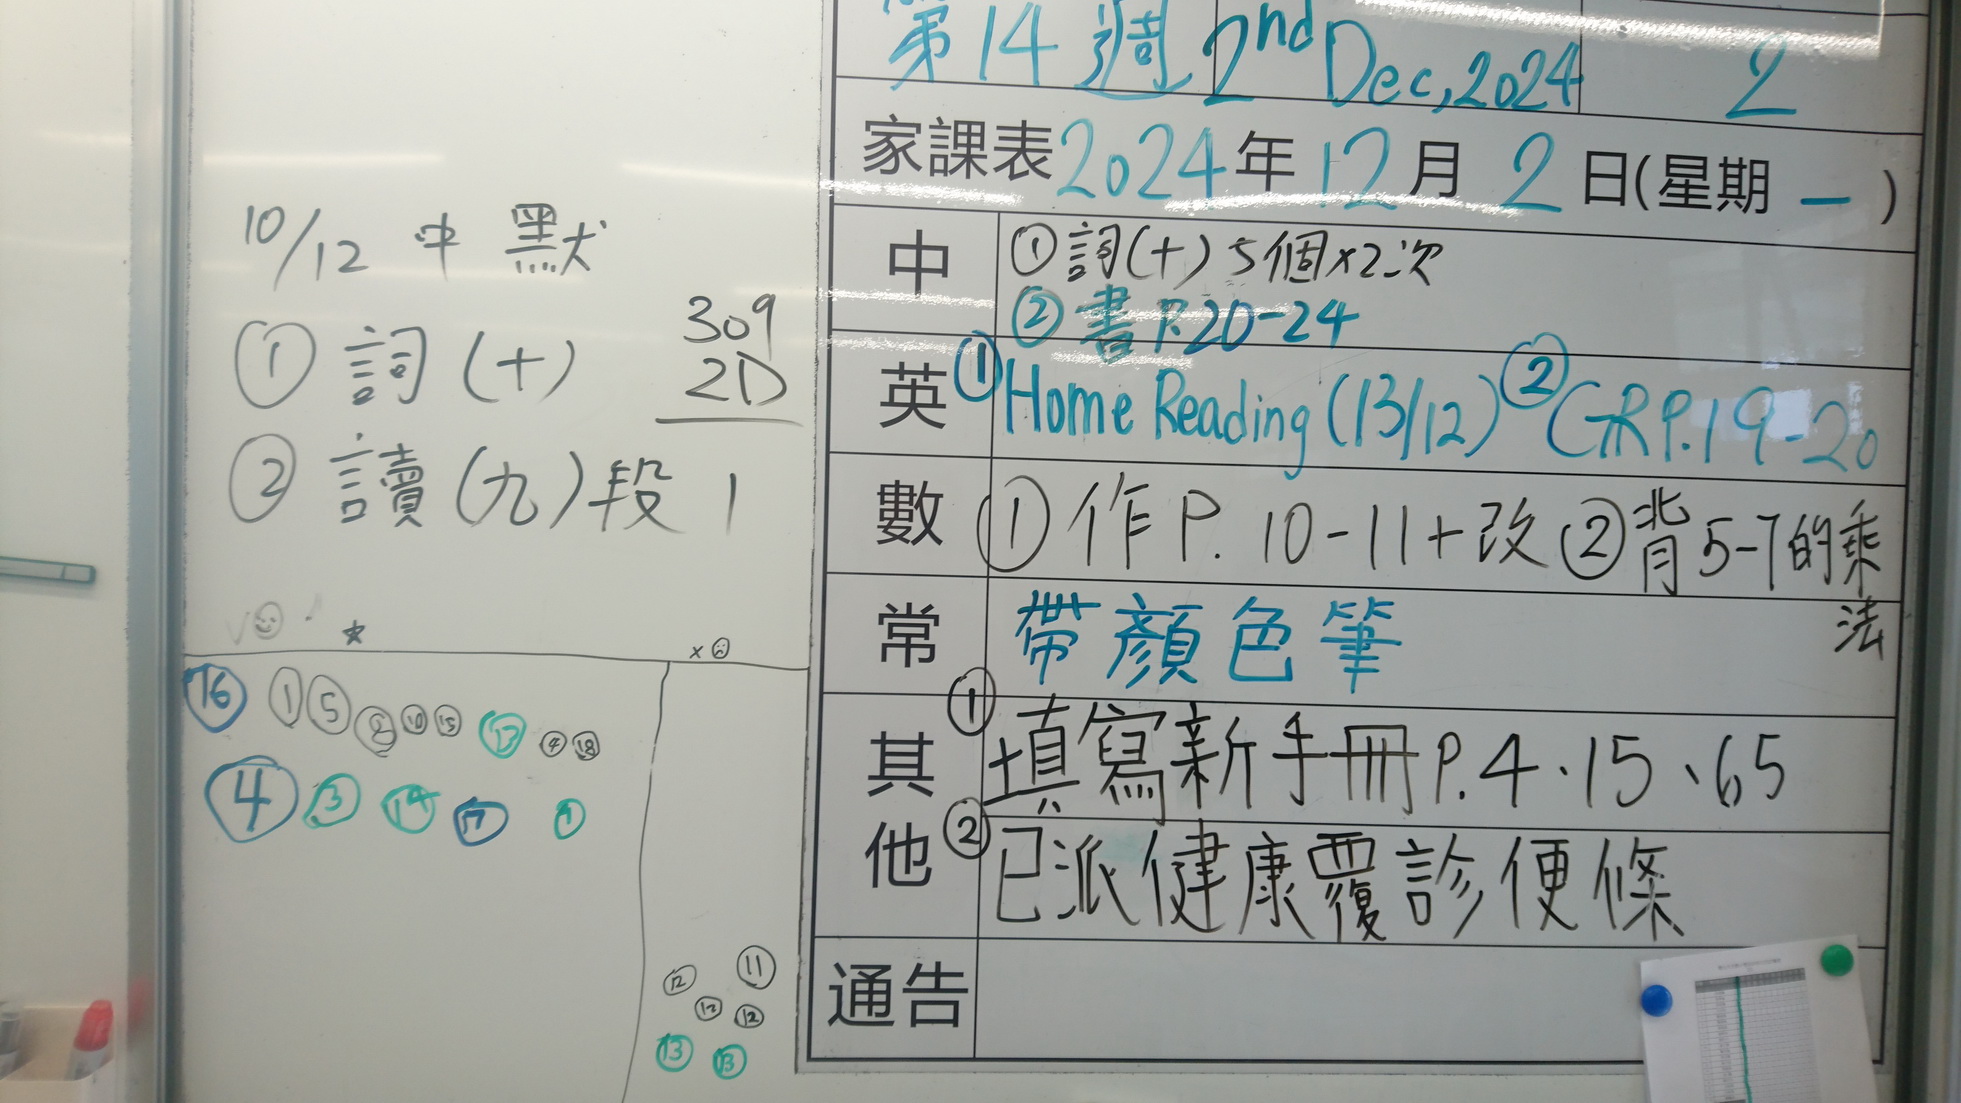 第14週 2nd Dec, 2024 2
家課表 2024年12月2日(星期一)
中 ①詞(十)5個×2次
②書P.20-24
英 ①Home Reading (13/12) ②GR P.19-20
數 ①作P. 10-11+改 ②背5-7的乘
法
常 帶顏色筆
其他 ①填寫新手冊P.4、15、65
②已派健康覆診便條
通告
10/12 中 默
①詞(十)
②讀(九)段1
309
2D
16 1 5 8 10 15 17 9 18
4 3 14 17 1
×
12 11
12 12
13 13